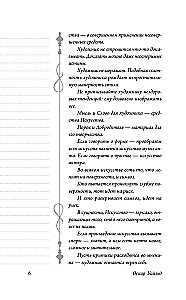 ства — в совершенном применении несовер-
шенных средств.
Художник не стремится что-то дока-
зывать. Доказать можно даже неоспоримые
истины.
Художник не моралист. Подобная склон-
ность художника рождает непростительную
манерность стиля.
Не приписывайте художнику нездо-
ровых тенденций: ему дозволено изображать
все.
Мысль и Слово для художника — сред-
ства Искусства.
Порок и Добродетель — материал для
его творчества.
Если говорить о форме —
искусства является искусство
Если говорить о чувстве —
Во всяком искусстве есть
на поверхности, и символ.
Кто пытается проникнуть глубже
поверхности, тот идет на риск.
И кто раскрывает символ, идет на
риск.
В сущности, Искусство — зеркало,
отражающее того, кто в него смотрится, а
вовсе не жизнь.
Если произведение искусства вызывает
споры — значит, в нем есть нечто новое,
сложное и значительное.
Пусть критики расходятся во мнени-
ях — художник остается верен себе.
6
Оскар Уайльд